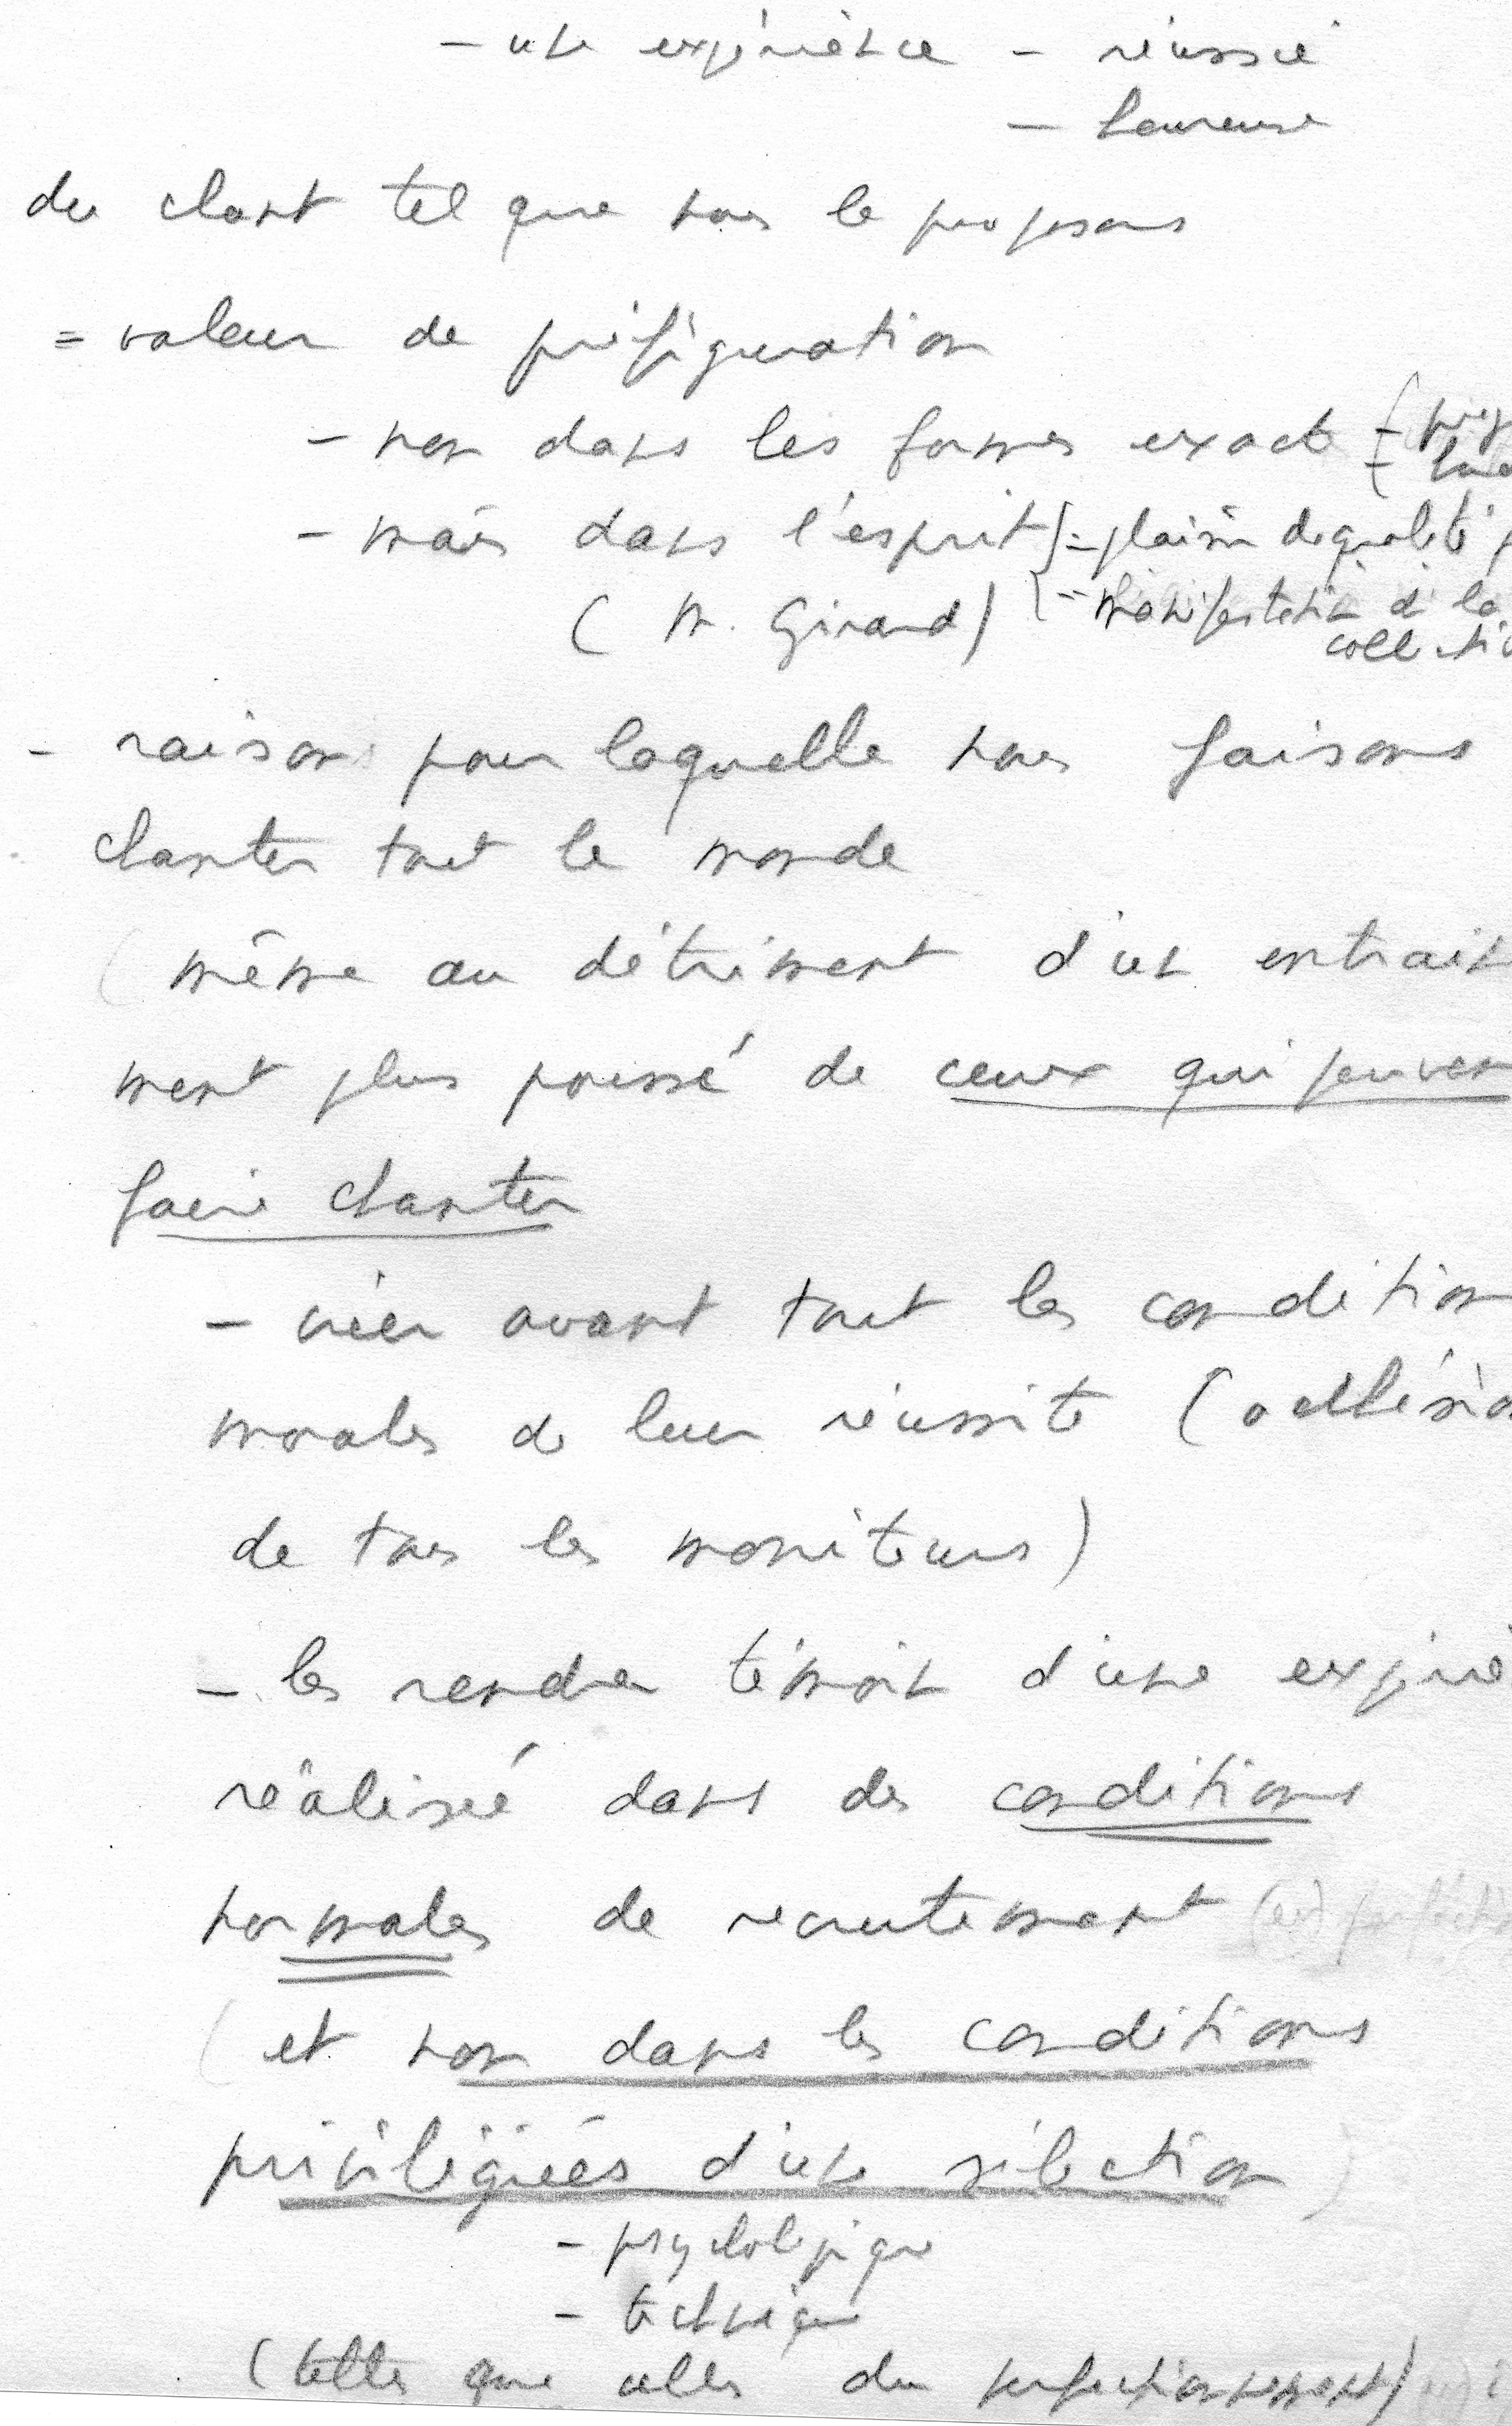 - une expérience - réussie
- heureuse
du chant tel que nous le proposons
= valeur de préfiguration
- non dans les formes exactes
- mais dans l'esprit = plaisir de qualité
(M. Girard) = manifestation de la
collecti
- raison pour laquelle nous faisons
chanter tout le monde
(même au détriment d'un entraîne
ment plus poussé de ceux qui peuvent
faire chanter
- créer avant tout les condition
morales de leur réussite (adhésio
de tous les moniteurs)
- les rendre témoin d'une expérie
réalisée dans des conditions
normales de recrutement
(et non dans les conditions
privilégiées d'une sélection)
- psychologique
- technique
(telles que celles du perfectionnement)